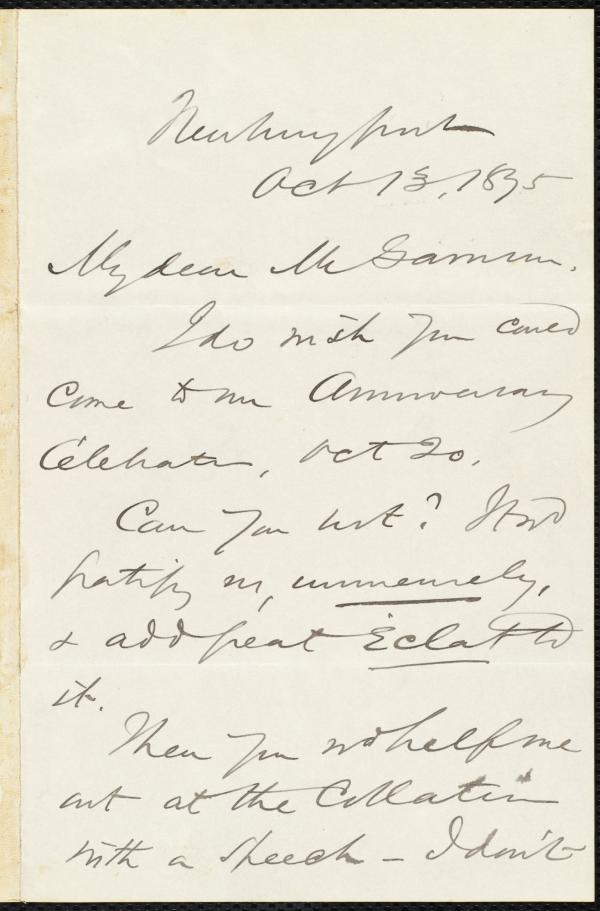 Newburyport
Oct 13, 1875
My dear Mr Garrison.
I do wish you could
come to our Anniversary
Celebration, Oct 20.
Can you not? It wd
gratify us, immensely,
& add great Eclat to
it.
Then you wd help me
out at the Collation
with a speech - I don't